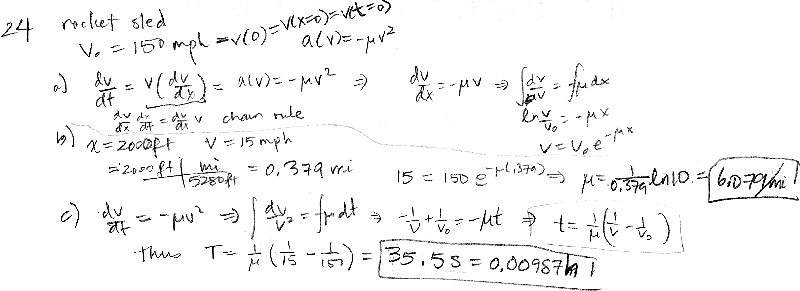 24 rocket sled
V₀ = 150 mph = v(0) = v(x=0) = v(t=0)
a(v) = -μv²
a) dv/dt = v(dv/dx) = a(v) = -μv² ⇒ dv/dx = -μv ⇒ ∫dv/v = -∫μdx
dv/dx dx/dt = dv/dx v chain rule
ln v/v₀ = -μx
v = v₀e^-μx
b) x = 2000ft v = 15 mph
= 2000ft | mi/5280ft = 0.379 mi
15 = 150 e^-μ(.379) ⇒ μ = 1/0.379 ln10 = 6.079/mi
c) dv/dt = -μv² ⇒ ∫dv/v² = -∫μdt ⇒ -1/v + 1/v₀ = -μt ⇒ t = 1/μ(1/v - 1/v₀)
thus T = 1/μ(1/15 - 1/150) = 35.5s = 0.00987h